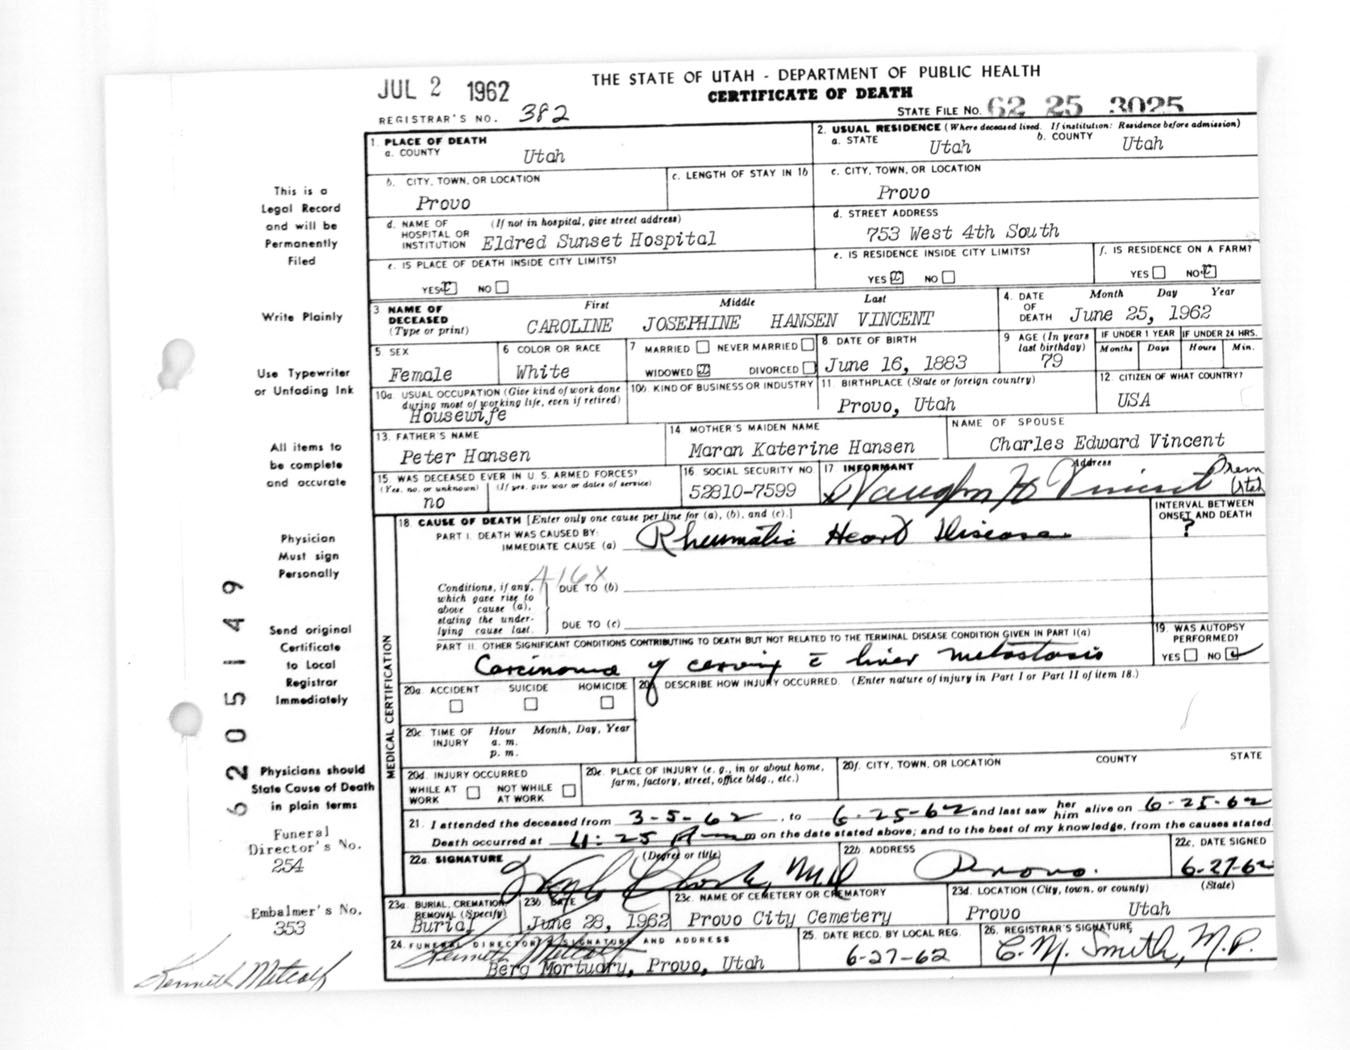 JUL 2 1962
THE STATE OF UTAH - DEPARTMENT OF PUBLIC HEALTH
CERTIFICATE OF DEATH
REGISTRAR'S NO. 382
STATE FILE NO. 62 25 3025
This is a
Legal Record
and will be
Permanently
Filed
Write Plainly
Use Typewriter
or Unfading Ink
All items to
be complete
and accurate
Physician
Must sign
Personally
Send original
Certificate
to Local
Registrar
Immediately
Physicians should
State Cause of Death
in plain terms
Funeral
Director's No.
254
Embalmer's No.
353
Kenneth Metcalf
6205149
1. PLACE OF DEATH
a. COUNTY Utah
2. USUAL RESIDENCE (Where deceased lived. If institution: Residence before admission)
a. STATE Utah b. COUNTY Utah
b. CITY, TOWN, OR LOCATION Provo
c. LENGTH OF STAY IN 1b
c. CITY, TOWN, OR LOCATION Provo
d. NAME OF HOSPITAL OR INSTITUTION (If not in hospital, give street address) Eldred Sunset Hospital
d. STREET ADDRESS 753 West 4th South
e. IS PLACE OF DEATH INSIDE CITY LIMITS?
YES NO
e. IS RESIDENCE INSIDE CITY LIMITS?
YES NO
f. IS RESIDENCE ON A FARM?
YES NO
3 NAME OF DECEASED (Type or print) First Middle Last
CAROLINE JOSEPHINE HANSEN VINCENT
4. DATE OF DEATH Month Day Year
June 25, 1962
5 SEX Female
6 COLOR OR RACE White
7 MARRIED NEVER MARRIED
WIDOWED DIVORCED
8 DATE OF BIRTH June 16, 1883
9 AGE (In years last birthday) 79
IF UNDER 1 YEAR Months Days
IF UNDER 24 HRS. Hours Min.
10a. USUAL OCCUPATION (Give kind of work done during most of working life, even if retired) Housewife
10b. KIND OF BUSINESS OR INDUSTRY
11. BIRTHPLACE (State or foreign country) Provo, Utah
12. CITIZEN OF WHAT COUNTRY? USA
13. FATHER'S NAME Peter Hansen
14 MOTHER'S MAIDEN NAME Maran Katerine Hansen
NAME OF SPOUSE Charles Edward Vincent
15 WAS DECEASED EVER IN U.S. ARMED FORCES?
(Yes, no, or unknown) (If yes, give war or dates of service)
no
16 SOCIAL SECURITY NO 52810-7599
17 INFORMANT Address
Vaughn H Vincent
18. CAUSE OF DEATH [Enter only one cause per line for (a), (b), and (c).]
PART I. DEATH WAS CAUSED BY:
IMMEDIATE CAUSE (a) Rheumatic Heart Disease
INTERVAL BETWEEN ONSET AND DEATH
?
416X
Conditions, if any, which gave rise to above cause (a), stating the underlying cause last.
DUE TO (b)
DUE TO (c)
PART II. OTHER SIGNIFICANT CONDITIONS CONTRIBUTING TO DEATH BUT NOT RELATED TO THE TERMINAL DISEASE CONDITION GIVEN IN PART I(a)
Carcinoma of cervix c̄ liver metastasis
19. WAS AUTOPSY PERFORMED?
YES NO
MEDICAL CERTIFICATION
20a. ACCIDENT SUICIDE HOMICIDE
20b. DESCRIBE HOW INJURY OCCURRED. (Enter nature of injury in Part I or Part II of item 18.)
20c. TIME OF INJURY Hour a.m. p.m. Month, Day, Year
20d. INJURY OCCURRED
WHILE AT WORK NOT WHILE AT WORK
20e. PLACE OF INJURY (e. g., in or about home, farm, factory, street, office bldg., etc.)
20f. CITY, TOWN, OR LOCATION COUNTY STATE
21. I attended the deceased from 3-5-62, to 6-25-62 and last saw her him alive on 6-25-62
Death occurred at 4:25 A m on the date stated above; and to the best of my knowledge, from the causes stated
22a. SIGNATURE (Degree or title) Clark, MD
22b. ADDRESS Provo.
22c. DATE SIGNED 6-27-62
23a. BURIAL, CREMATION, REMOVAL (Specify) Burial
23b. DATE June 28, 1962
23c. NAME OF CEMETERY OR CREMATORY Provo City Cemetery
23d. LOCATION (City, town, or county) (State)
Provo Utah
24. FUNERAL DIRECTOR'S SIGNATURE AND ADDRESS
Kenneth Metcalf
Berg Mortuary, Provo, Utah
25. DATE RECD. BY LOCAL REG. 6-27-62
26. REGISTRAR'S SIGNATURE C. M. Smith, M.D.